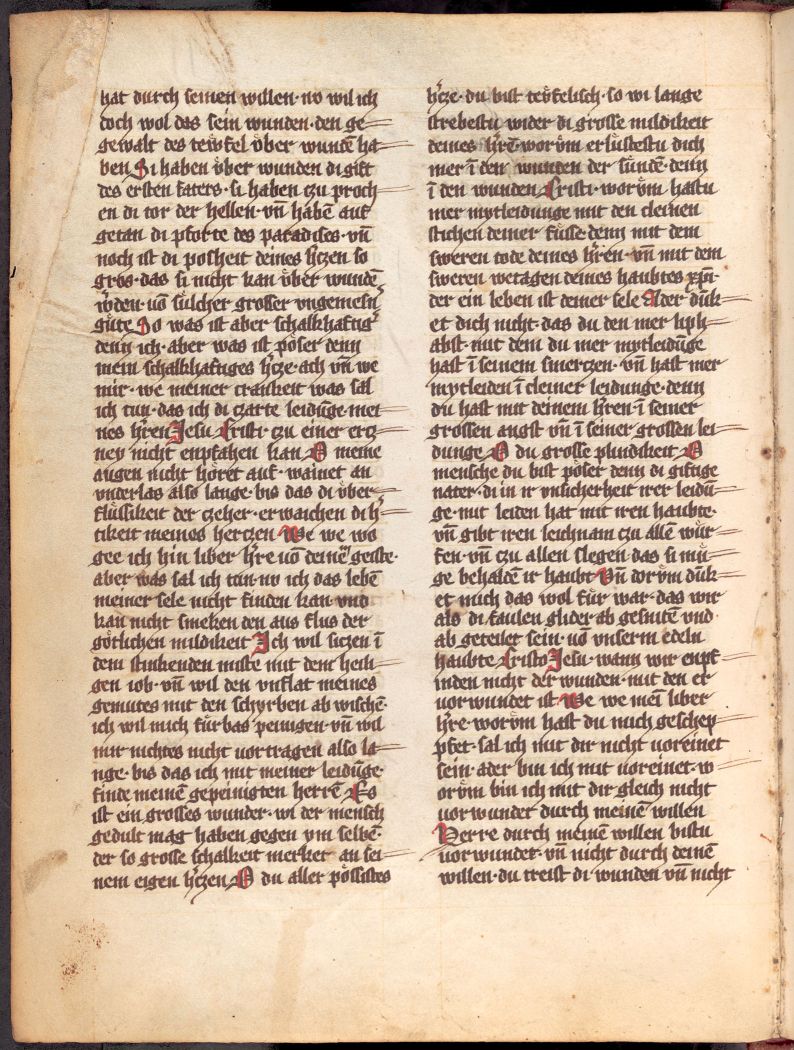 hat durch seinen willen · nv wil ich
doch wol das sein wunden · den ge
gewalt des tewfel v̈ber wundē ha
ben Si haben v̈ber wunden di gift
des ersten faters · si haben czu proch
en di tor der hellen · vn̄ habē auf
getan di pforte des paradises · vn̄
noch ist di posheit deines h̓czen so
gros · das si nicht kan v̈ber wundē
w̓den · uō sulcher grosser vngemesn̄
gute So was ist aber schalkhaftig̓
denn ich · aber was ist pöser denn
mein schalkhaftiges h̓cze · ach vn̄ we
mir · we meiner crankeit was sal
ich tun · das ich di czarte leidūge mei
nes h̓ren Jesu Cristi · czu einer ercz
ney nicht enpfahen kan O meine
augen nicht höret auf · wainet an
vnderlas also lange · bis das di v̈ber
flüssikeit der czeher · erwaichen di h̓
tikeit meines herczen We we wo
gee ich hin liber h̓re uō deinē geiste ·
aber was sal ich tun · nv ich das lebē
meiner sele nicht finden kan · vnd
kan nicht smeken den aus flus der
götlichen mildikeit Ich wil siczen ī
dem stinkenden miste mit dem heili
gen iob · vn̄ wil den vnflat meines
gemutes mit den schyrben ab wischē ·
ich wil mich fürbas peinigen · vn̄ wil
mir nichtes nicht uortragen also la
nge · bis das ich mit meiner leidūge
finde meinē gepeinigten herrē Es
ist ein grosses wunder · wi der mensch
gedult mag haben gegen ym selbē ·
der so grosse schalkeit merket an sei
nem eigen h̓czen O du aller pössistes
h̓cze · du bist teẅfelisch · so wi lange
strebestu wider di grosse mildikeit
deines h̓rē worv̈m erlüstestu dich
mer ī den wunden der sündē · denn
ī den wunden Cristi · worv̈m hastu
mer mytleidunge mit den cleinen
stichen deiner füsse · denn mit dem
sweren tode deines h̓ren · vn̄ mit dem
sweren wetagen deines haubtes xp̄i ·
der ein leben ist deiner sele Ader dük
et dich nicht · das du den mer liph
abst · mit dem du mer mytleidūge
hast ī seinem smerczen · vn̄ hast mer
mytleiden ī cleiner leidunge · denn
du hast mit deinem h̓ren · ī seiner
grossen angst vn̄ ī seiner grossen lei
dunge O du grosse plindikeit O
mensche du bist pöser denn di giftige
nater · di in ir vnsicherheit irer leidū
ge · mit leiden hat mit iren haubte ·
vn̄ gibt iren leichnam czu allē wür
fen · vn̄ czu allen slegen das si mü
ge behaldē ir haubt Vn̄ dorv̈m dük
et mich das wol für war · das wir
als di faulen glider ab gesniten vnd
ab geteilet sein · uō vnserm edeln
haubte Cristo Jesu · wann wir enpf
inden nicht der wunden · mit den er
uorwundet ist We we mein liber
h̓re · worv̈m hast du mich geschep
pfet · sal ich mit dir nicht uoreinet
sein · ader bin ich mit uoreinet · w
orv̈m bin ich mit dir gleich nicht
uorwundet durch meinē willen
Herre durch meinē willen bistu
uorwundet · vn̄ nicht durch deinē
willen · du treist di wunden vn̄ nicht